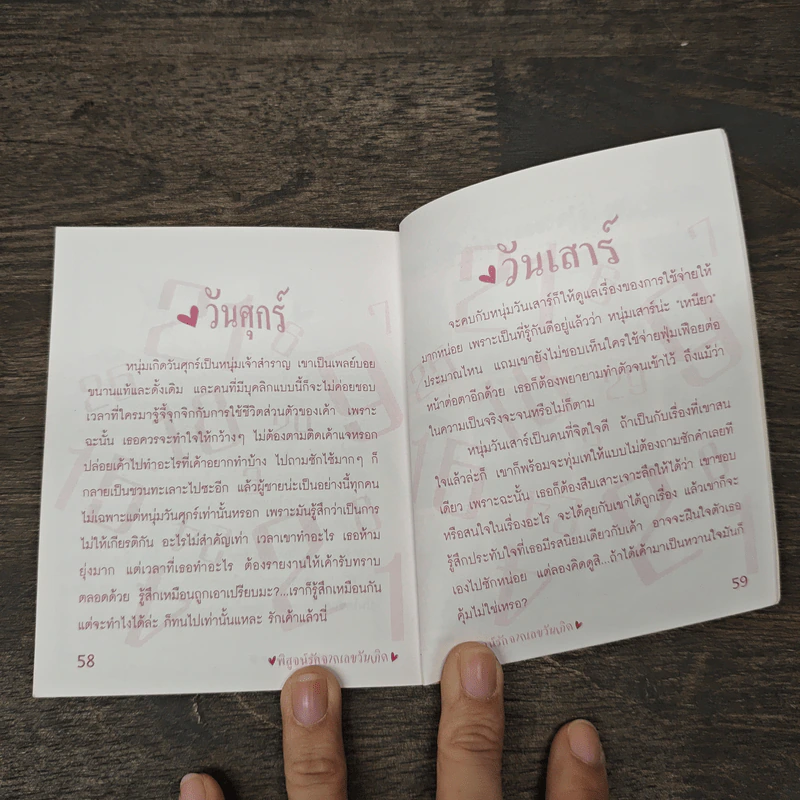 วันศุกร์
หนุ่มเกิดวันศุกร์เป็นหนุ่มเจ้าสำราญ เขาเป็นเพลย์บอย
ขนานแท้และดั้งเดิม และคนที่มีบุคลิกแบบนี้ก็จะไม่ค่อยชอบ
เวลาที่ใครมาจู้จี้จุกจิกกับการใช้ชีวิตส่วนตัวของเค้า เพราะ
ฉะนั้น เธอควรจะทำใจให้กว้างๆ ไม่ต้องตามติดเค้าแจหรอก
ปล่อยเค้าไปทำอะไรที่เค้าอยากทำบ้าง ไปถามซักไซ้มากๆ ก็
กลายเป็นชวนทะเลาะไปซะอีก แล้วผู้ชายน่ะเป็นอย่างนี้ทุกคน
ไม่เฉพาะแต่หนุ่มวันศุกร์เท่านั้นหรอก เพราะมันรู้สึกว่าเป็นการ
ไม่ให้เกียรติกัน อะไรไม่สำคัญเท่า เวลาเขาทำอะไร เธอห้าม
ยุ่งมาก แต่เวลาที่เธอทำอะไร ต้องรายงานให้เค้ารับทราบ
ตลอดด้วย รู้สึกเหมือนถูกเอาเปรียบมะ?...เราก็รู้สึกเหมือนกัน
แต่จะทำไงได้ล่ะ ก็ทนไปเท่านั้นแหละ รักเค้าแล้วนี่
58
พิสูจน์รักจากเลขวันเกิด
วันเสาร์
จะคบกับหนุ่มวันเสาร์ก็ให้ดูแลเรื่องของการใช้จ่ายให้
มากหน่อย เพราะเป็นที่รู้กันดีอยู่แล้วว่า หนุ่มเสาร์น่ะ "เหนียว"
ประมาณไหน แถมเขายังไม่ชอบเห็นใครใช้จ่ายฟุ่มเฟือยต่อ
หน้าต่อตาอีกด้วย เธอก็ต้องพยายามทำตัวจนเข้าไว้ ถึงแม้ว่า
ในความเป็นจริงจะจนหรือไม่ก็ตาม
หนุ่มวันเสาร์เป็นคนที่จิตใจดี ถ้าเป็นกับเรื่องที่เขาสน
ใจแล้วล่ะก็ เขาก็พร้อมจะทุ่มเทให้แบบไม่ต้องถามซักคำเลยที
เดียว เพราะฉะนั้น เธอก็ต้องสืบเสาะเจาะลึกให้ได้ว่า เขาชอบ
หรือสนใจในเรื่องอะไร จะได้คุยกับเขาได้ถูกเรื่อง แล้วเขาก็จะ
รู้สึกประทับใจที่เธอมีรสนิยมเดียวกับเค้า อาจจะฝืนใจตัวเธอ
เองไปซักหน่อย แต่ลองคิดดูสิ...ถ้าได้เค้ามาเป็นหวานใจมันก็
คุ้มไม่ใช่เหรอ?
59
จน์รักจากเลขวันเกิด